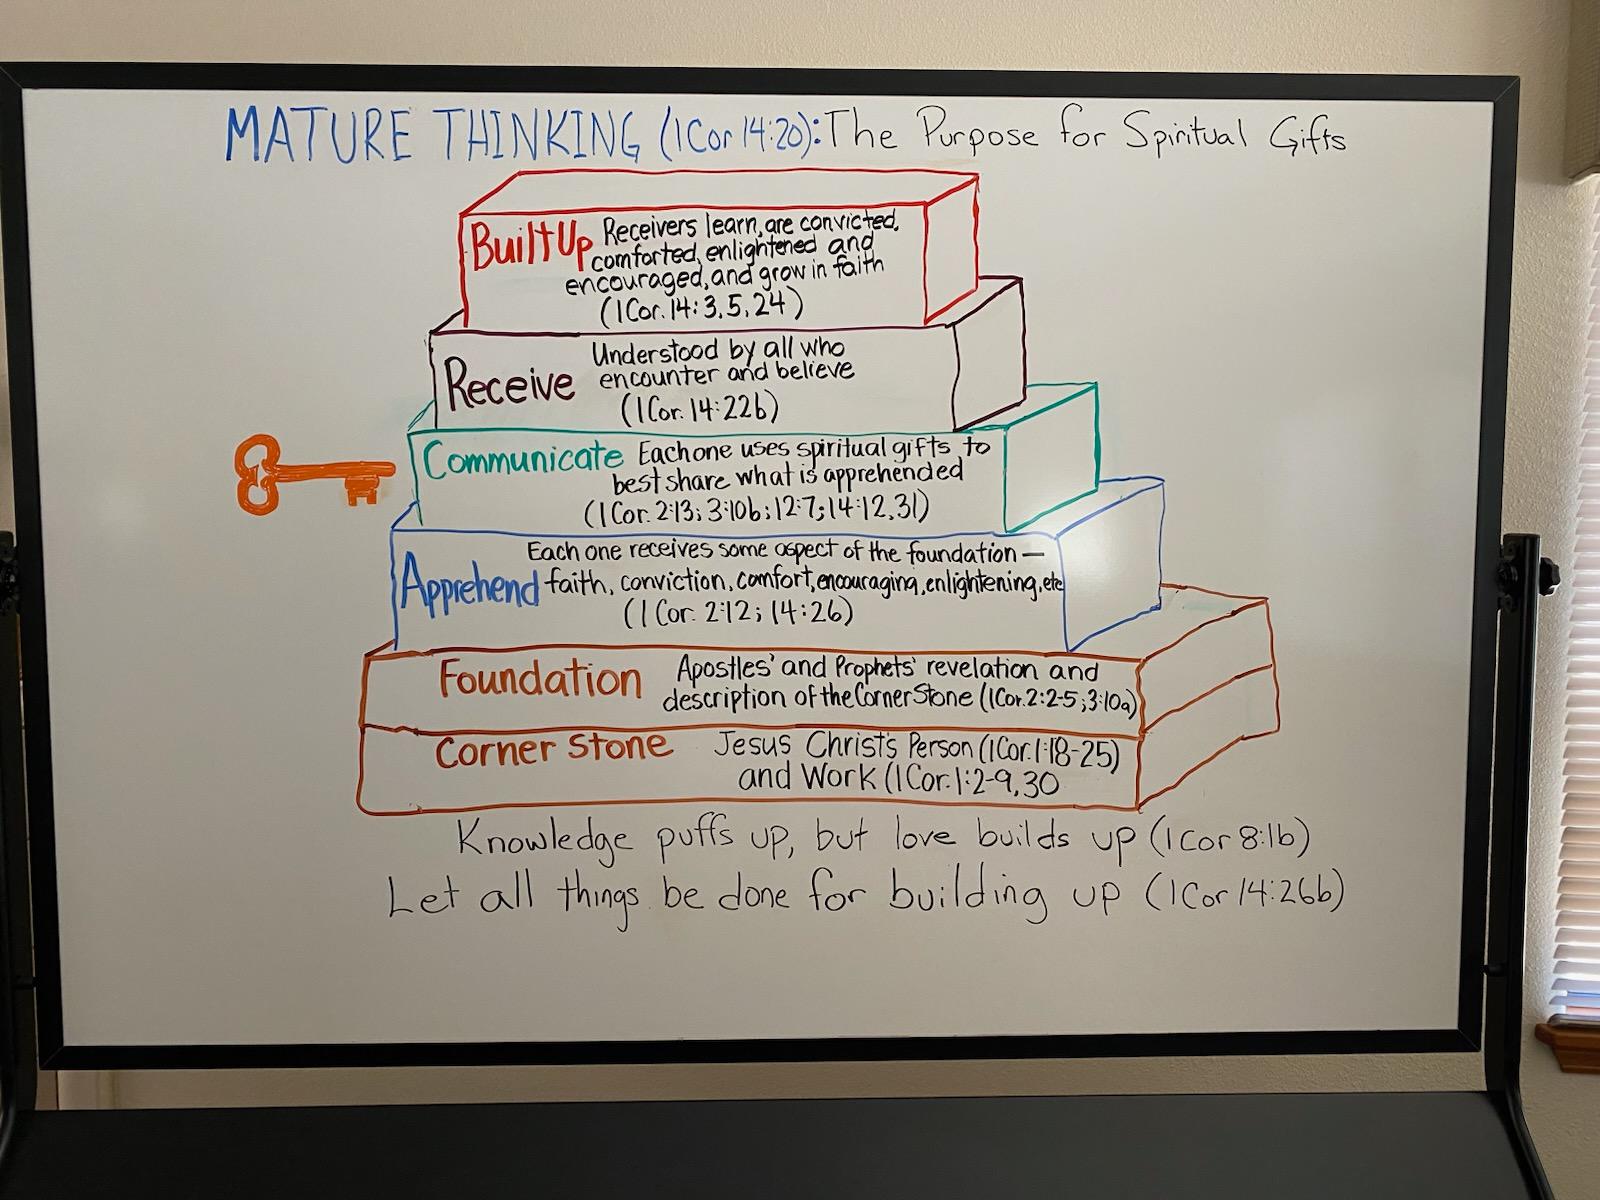 MATURE THINKING (1Cor 14:20): The Purpose for Spiritual Gifts
Built Up Receivers learn, are convicted,
comforted, enlightened and
encouraged, and grow in faith
(1Cor. 14:3,5,24)
Receive Understood by all who
encounter and believe
(1Cor. 14:22b)
Communicate Each one uses spiritual gifts to
best share what is apprehended
(1Cor. 2:13; 3:10b; 12:7; 14:12,31)
Each one receives some aspect of the foundation —
Apprehend faith, conviction, comfort, encouraging, enlightening, etc
(1Cor. 2:12; 14:26)
Foundation Apostles' and Prophets' revelation and
description of the Corner Stone (1Cor. 2:2-5; 3:10a)
Corner Stone Jesus Christ's Person (1Cor. 1:18-25)
and Work (1Cor. 1:2-9,30
Knowledge puffs up, but love builds up (1Cor 8:1b)
Let all things be done for building up (1Cor 14:26b)